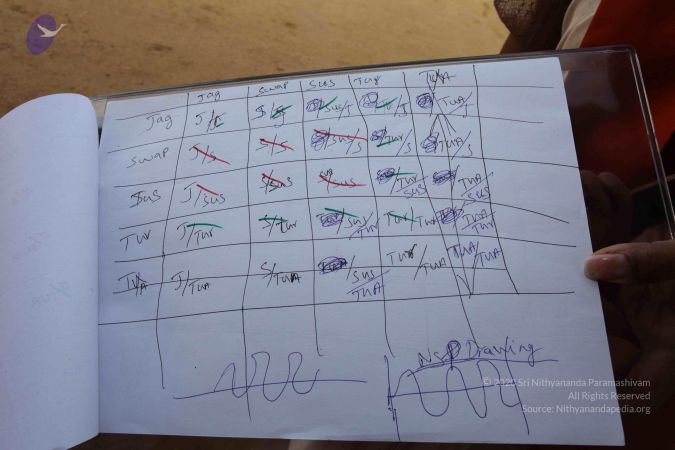 Jag swap sus Tur TurA
Jag J/J S/J /S/J /Tur/J /TUA/J
swap J/S S/S /sus/S /Tur/S /TUA/S
Sus J/sus S/sus sus/sus /Tur/sus /TUA/sus
Tur J/Tur S/Tur /sus/Tur Tur/TUA /TUA/Tur
TUA J/TUA S/TUA /sus/TUA Tur/TUA TUA/TUA
Drawing
© 2020 Sri Nithyananda Paramashivam
All Rights Reserved
Source: Nithyanandapedia.org